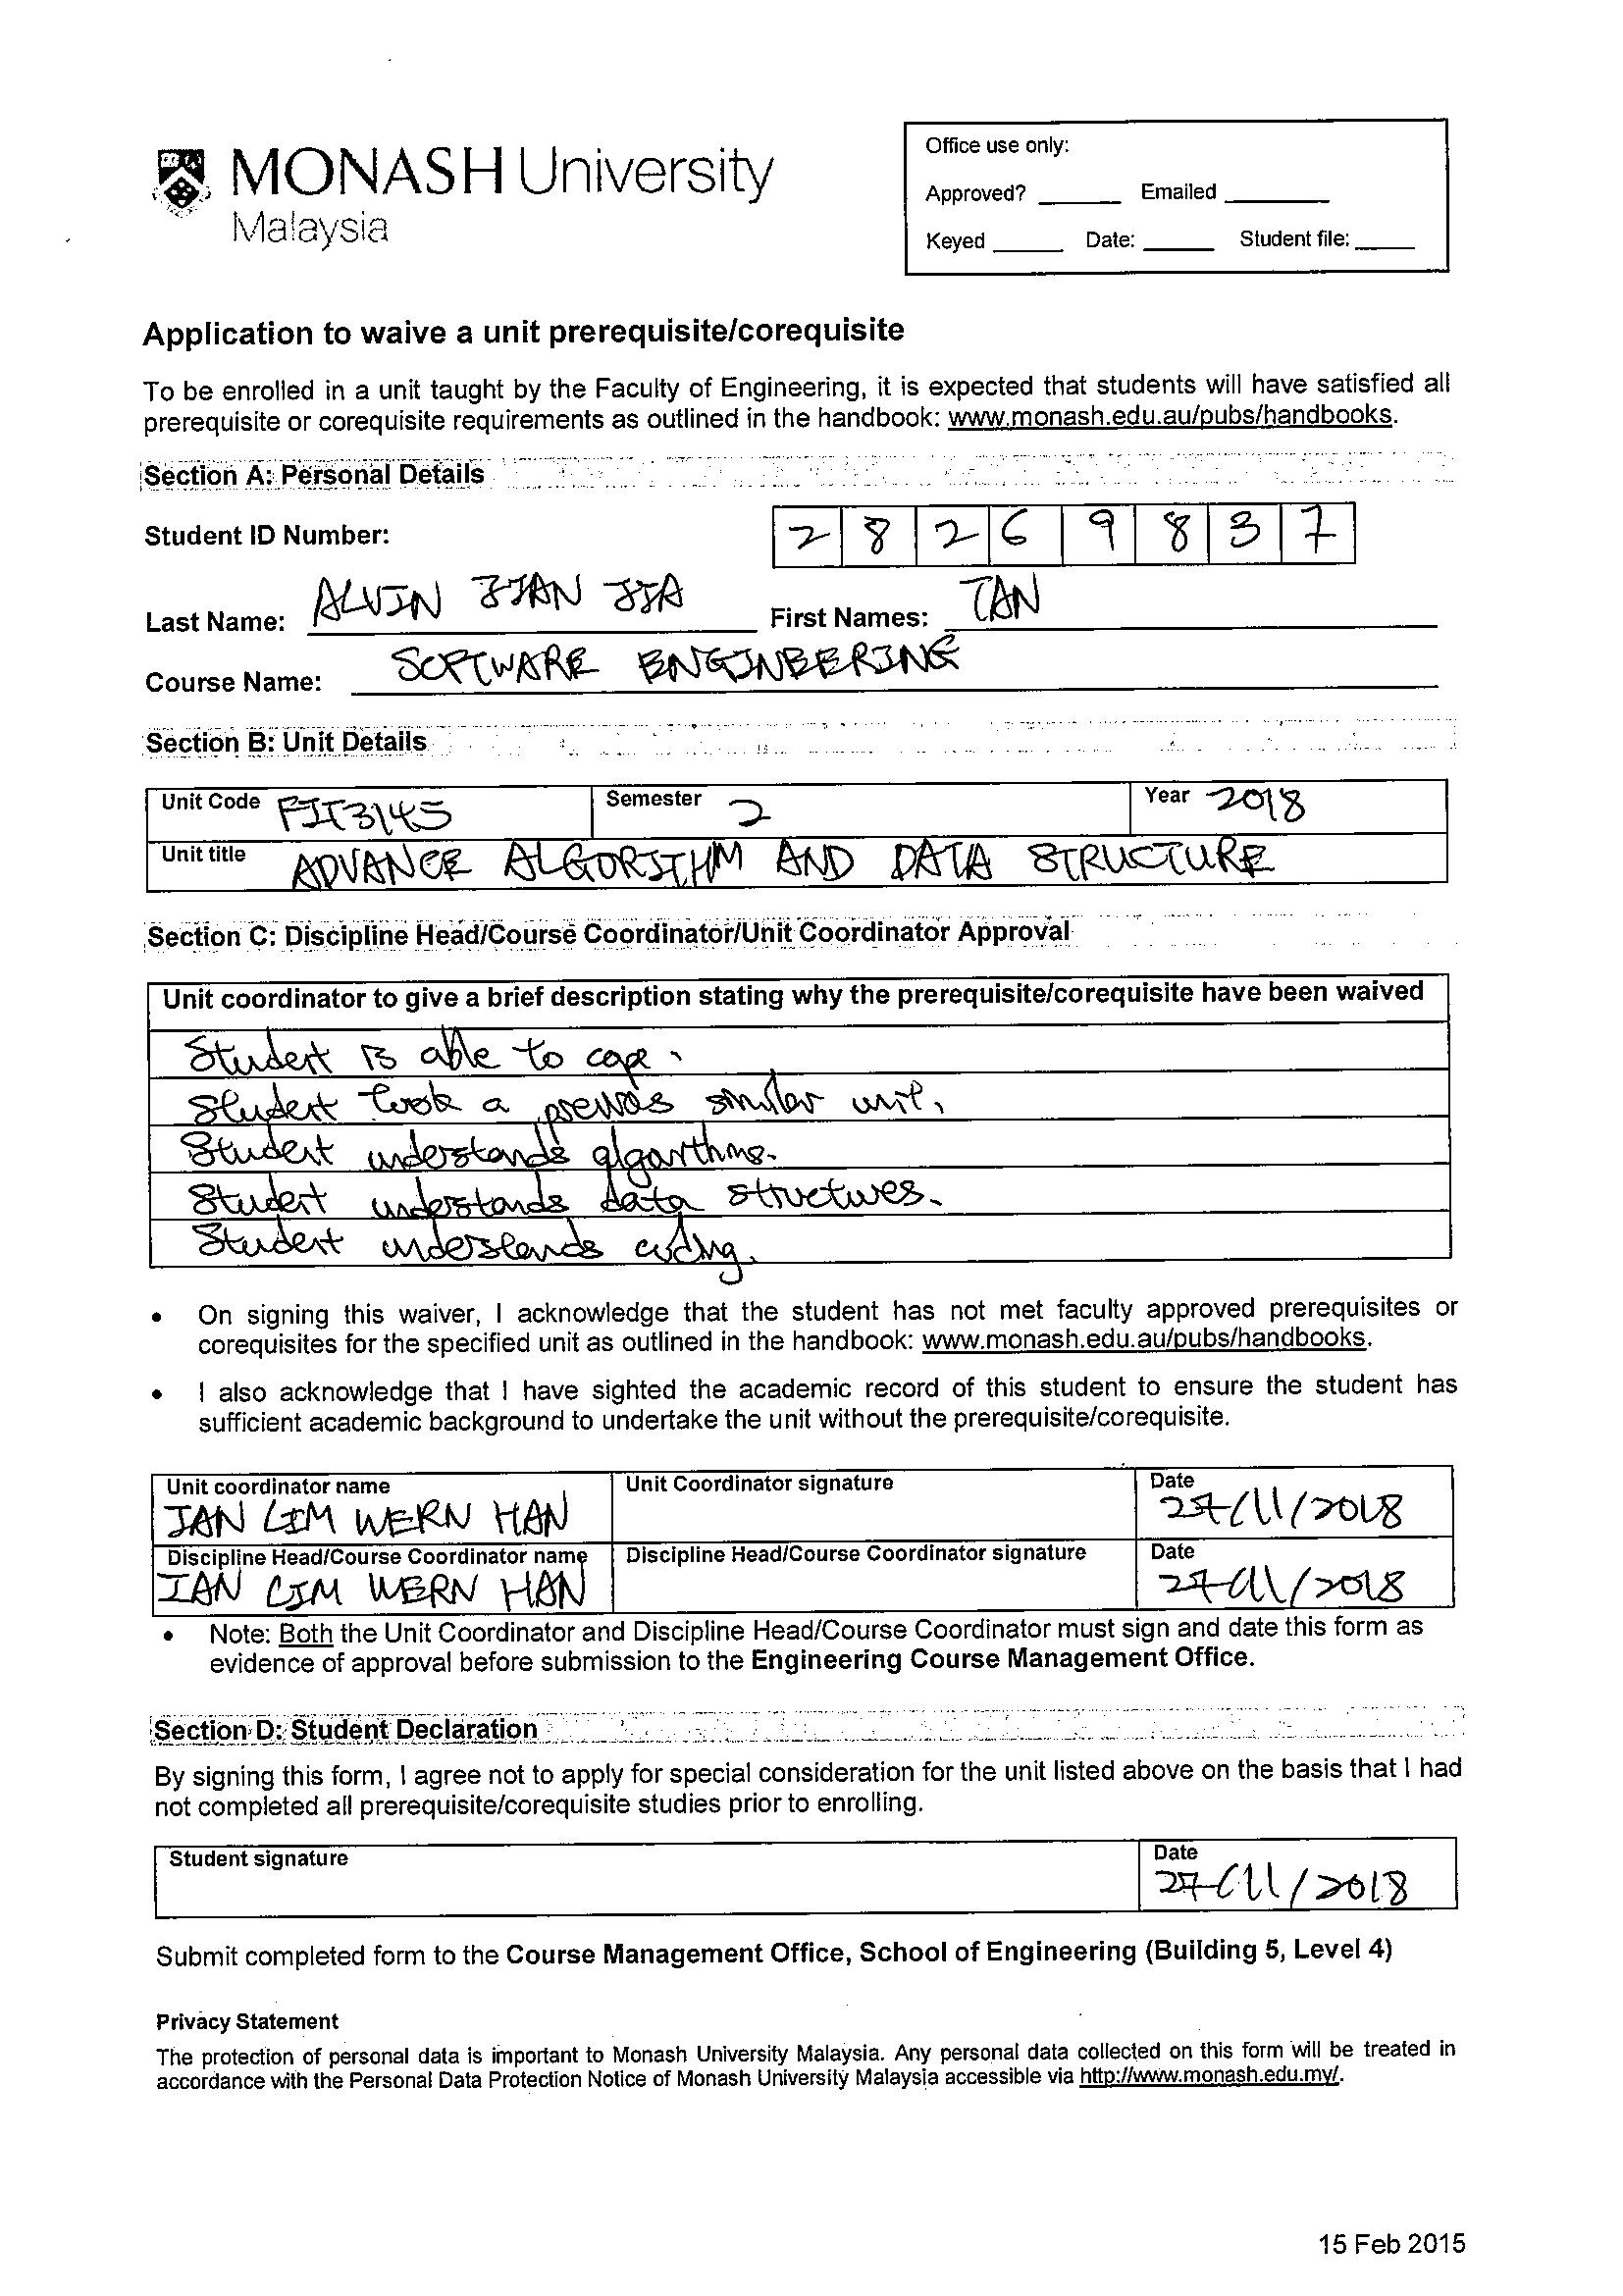 MONASH University
Malaysia
Office use only:
Approved? ______ Emailed ______
Keyed ______ Date: ______ Student file: ______
Application to waive a unit prerequisite/corequisite
To be enrolled in a unit taught by the Faculty of Engineering, it is expected that students will have satisfied all
prerequisite or corequisite requirements as outlined in the handbook: www.monash.edu.au/pubs/handbooks.
Section A: Personal Details
Student ID Number: 2 8 2 6 9 8 3 7
Last Name: ALVIN JIAN JIA First Names: TAN
Course Name: SOFTWARE ENGINEERING
Section B: Unit Details
Unit Code FIT3145 Semester 2 Year 2018
Unit title ADVANCE ALGORITHM AND DATA STRUCTURE
Section C: Discipline Head/Course Coordinator/Unit Coordinator Approval
Unit coordinator to give a brief description stating why the prerequisite/corequisite have been waived
Student is able to cope.
Student took a previous similar unit.
Student understands algorithms.
Student understands data structures.
Student understands coding.
• On signing this waiver, I acknowledge that the student has not met faculty approved prerequisites or
corequisites for the specified unit as outlined in the handbook: www.monash.edu.au/pubs/handbooks.
• I also acknowledge that I have sighted the academic record of this student to ensure the student has
sufficient academic background to undertake the unit without the prerequisite/corequisite.
Unit coordinator name Unit Coordinator signature Date
IAN LIM WERN HAN 27/11/2018
Discipline Head/Course Coordinator name Discipline Head/Course Coordinator signature Date
IAN LIM WERN HAN 27/11/2018
• Note: Both the Unit Coordinator and Discipline Head/Course Coordinator must sign and date this form as
evidence of approval before submission to the Engineering Course Management Office.
Section D: Student Declaration
By signing this form, I agree not to apply for special consideration for the unit listed above on the basis that I had
not completed all prerequisite/corequisite studies prior to enrolling.
Student signature Date
27/11/2018
Submit completed form to the Course Management Office, School of Engineering (Building 5, Level 4)
Privacy Statement
The protection of personal data is important to Monash University Malaysia. Any personal data collected on this form will be treated in
accordance with the Personal Data Protection Notice of Monash University Malaysia accessible via http://www.monash.edu.my/.
15 Feb 2015